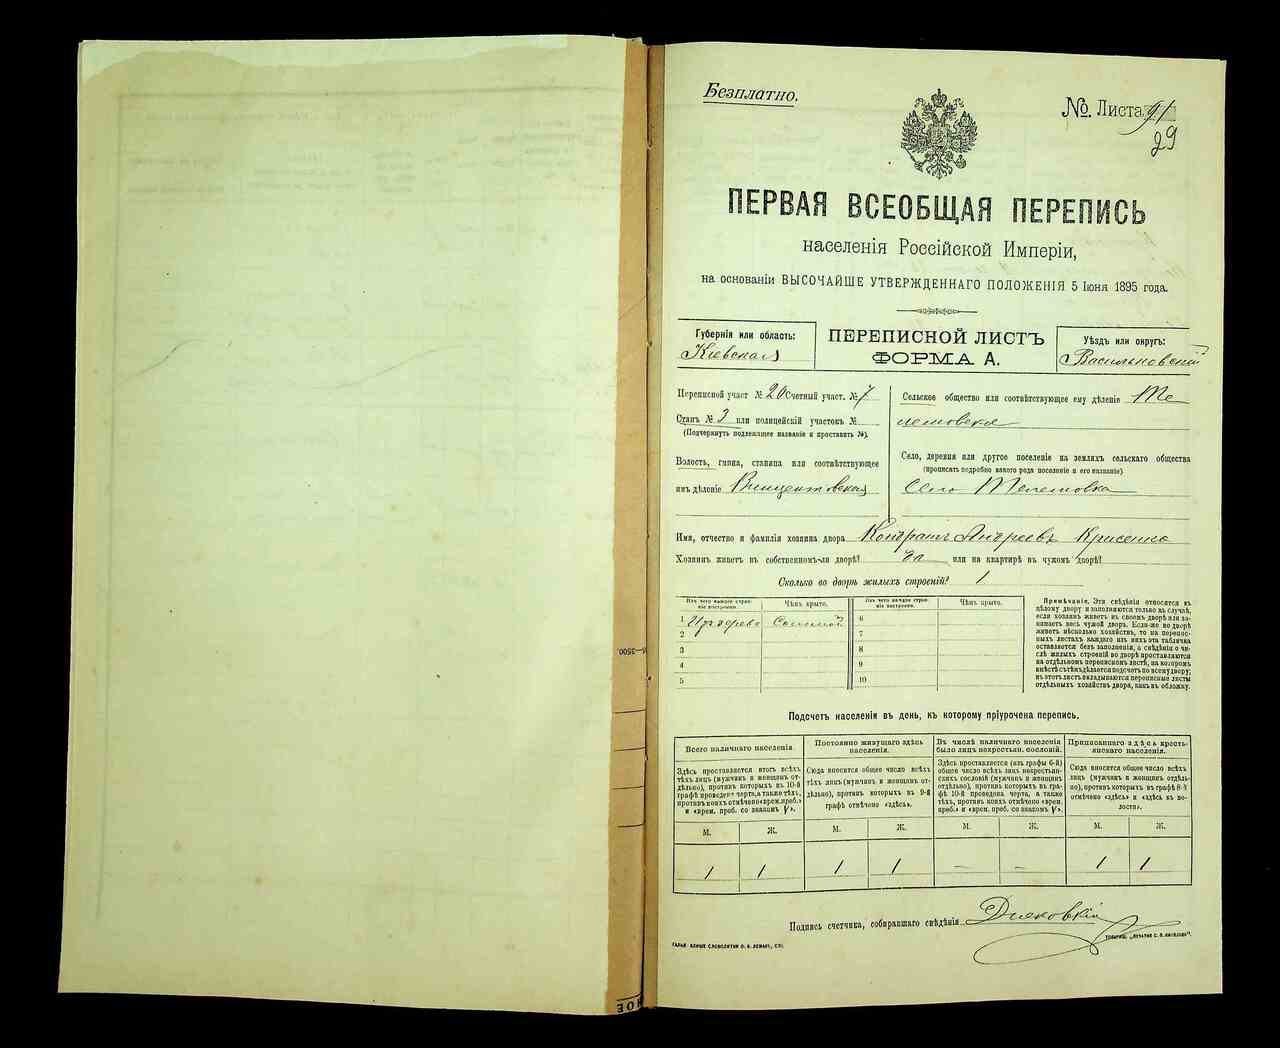 Безплатно.
№. Листа 91
29
ПЕРВАЯ ВСЕОБЩАЯ ПЕРЕПИСЬ
населенія Россійской Имперіи,
на основаніи ВЫСОЧАЙШЕ УТВЕРЖДЕННАГО ПОЛОЖЕНІЯ 5 Іюня 1895 года.
Губернія или область:
Кіевская
ПЕРЕПИСНОЙ ЛИСТЪ
ФОРМА А.
Уѣздъ или округъ:
Васильковскій
Переписной участ № 20 Счетный участ. № 7
Станъ № 3 или полицейскій участокъ №
(Подчеркнуть подлежащее названіе и проставить №).
Волость, гмина, станица или соотвѣтствующее
имъ дѣленіе Винцентовская
Сельское общество или соотвѣтствующее ему дѣленіе Те
лешовское
Село, деревня или другое поселеніе на земляхъ сельскаго общества
(прописать подробно какого рода поселеніе и его названіе)
Село Телешовка
Имя, отчество и фамилія хозяина двора Кондратъ Андреевъ
Хозяинъ живетъ въ собственномъ-ли дворѣ? да или на квартирѣ въ чужомъ дворѣ?
Сколько во дворѣ жилыхъ строеній? 1
Изъ чего каждое строеніе построено.
Чѣмъ крыто.
Изъ чего каждое строеніе построено.
Чѣмъ крыто.
1 Изъ дерева Соломой
2
3
4
5
6
7
8
9
10
Примѣчаніе. Эта свѣдѣнія относятся къ
цѣлому двору и заполняются только въ случаѣ,
если хозяинъ живетъ въ своемъ дворѣ или занимаетъ
весь чужой дворъ. Если-же во дворѣ
живетъ нѣсколько хозяйствъ, то на переписныхъ
листахъ каждаго изъ нихъ эта табличка
оставляется безъ заполненія, а свѣдѣнія о числѣ
жилыхъ строеній во дворѣ проставляются
на отдѣльномъ переписномъ листѣ, на которомъ
вмѣстѣ съ тѣмъ дѣлается подсчетъ по всему двору;
въ этотъ листъ вкладываются переписные листы
отдѣльныхъ хозяйствъ двора, какъ въ обложку.
Подсчетъ населенія въ день, къ которому пріурочена перепись.
Всего наличнаго населенія.
Здѣсь проставляется итогъ всѣхъ
тѣхъ лицъ (мужчинъ и женщинъ отдѣльно),
противъ которыхъ въ 10-й
графѣ проведена черта, а также тѣхъ,
противъ коихъ отмѣчено «врем. преб.»
и «врем. проб. со знакомъ V».
Постоянно живущаго здѣсь
населенія.
Сюда вносится общее число всѣхъ
тѣхъ лицъ (мужчинъ и женщинъ отдѣльно),
противъ которыхъ въ 9-й
графѣ отмѣчено «здѣсь».
Въ числѣ наличнаго населенія
было лицъ некрестьян. сословій.
Здѣсь проставляется (изъ графы 6-й)
общее число всѣхъ лицъ некрестьянскихъ
сословій (мужчинъ и женщинъ
отдѣльно), противъ которыхъ въ графѣ
10 проведена черта, а также
тѣхъ, противъ коихъ отмѣчено «врем.
преб.» и «врем. преб. со знакомъ V».
Приписаннаго здѣсь крестьянскаго
населенія.
Сюда вносится общее число всѣхъ
лицъ (мужчинъ и женщинъ отдѣльно),
противъ которыхъ въ графѣ 8-й
отмѣчено «здѣсь» и «здѣсь въ волости».
М. Ж. М. Ж. М. Ж. М. Ж.
1 1 1 1 — — 1 1
Подпись счетчика, собиравшаго свѣдѣнія